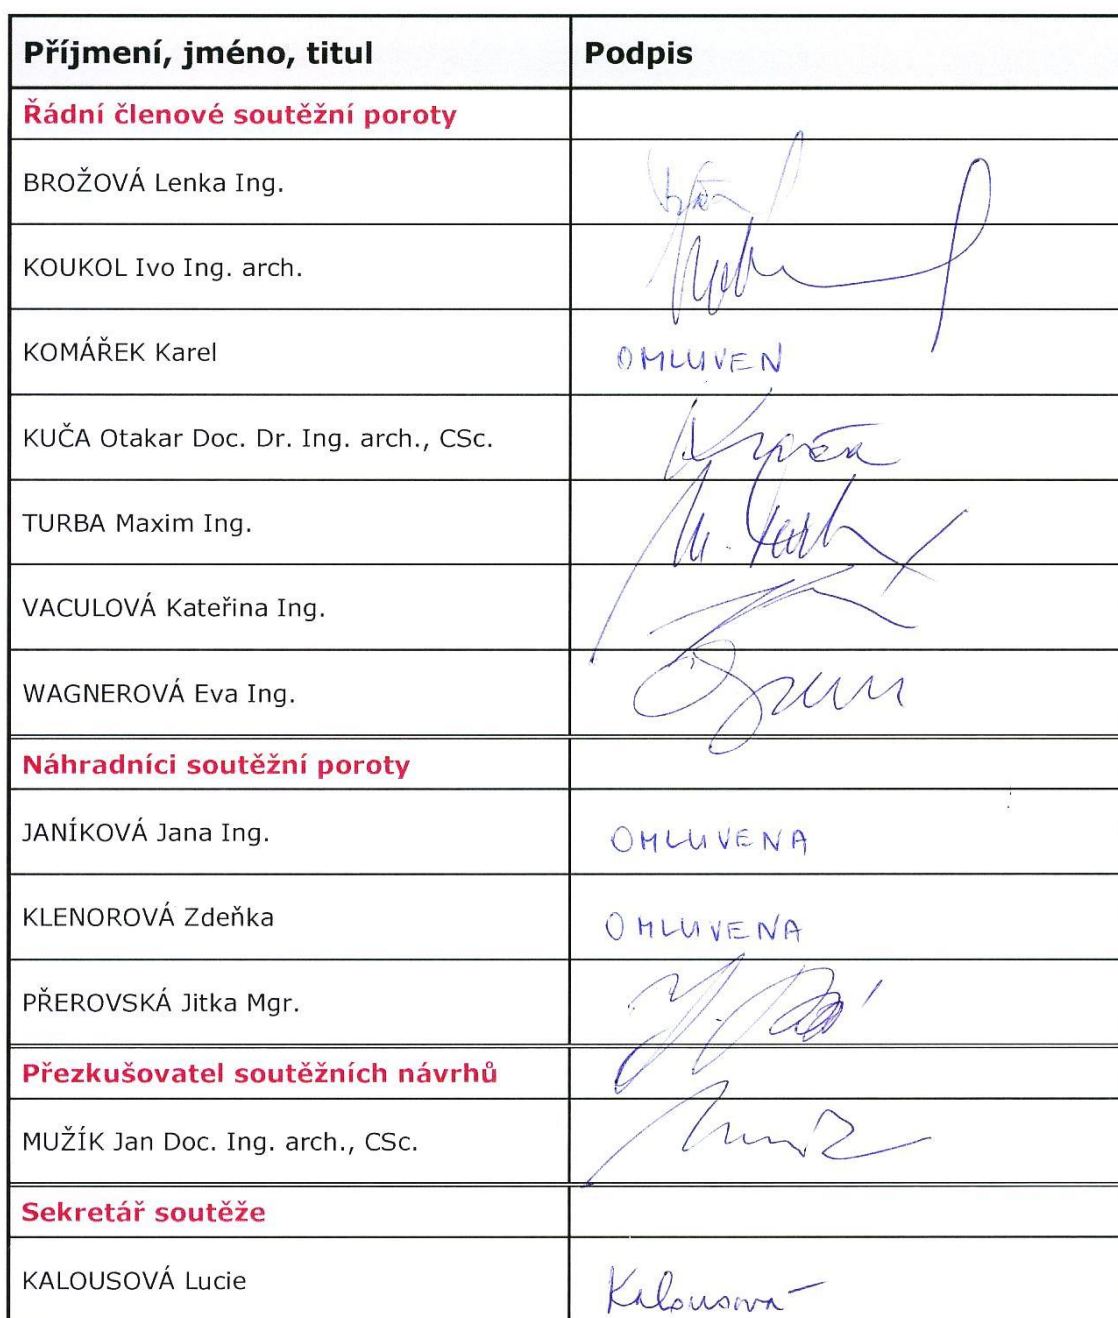 Příjmení, jméno, titul Podpis
Řádní členové soutěžní poroty
BROŽOVÁ Lenka Ing.
KOUKOL Ivo Ing. arch.
KOMÁŘEK Karel OMLUVEN
KUČA Otakar Doc. Dr. Ing. arch., CSc.
TURBA Maxim Ing.
VACULOVÁ Kateřina Ing.
WAGNEROVÁ Eva Ing.
Náhradníci soutěžní poroty
JANÍKOVÁ Jana Ing. OMLUVENA
KLENOROVÁ Zdeňka OMLUVENA
PŘEROVSKÁ Jitka Mgr.
Přezkušovatel soutěžních návrhů
MUŽÍK Jan Doc. Ing. arch., CSc.
Sekretář soutěže
KALOUSOVÁ Lucie Kalousová